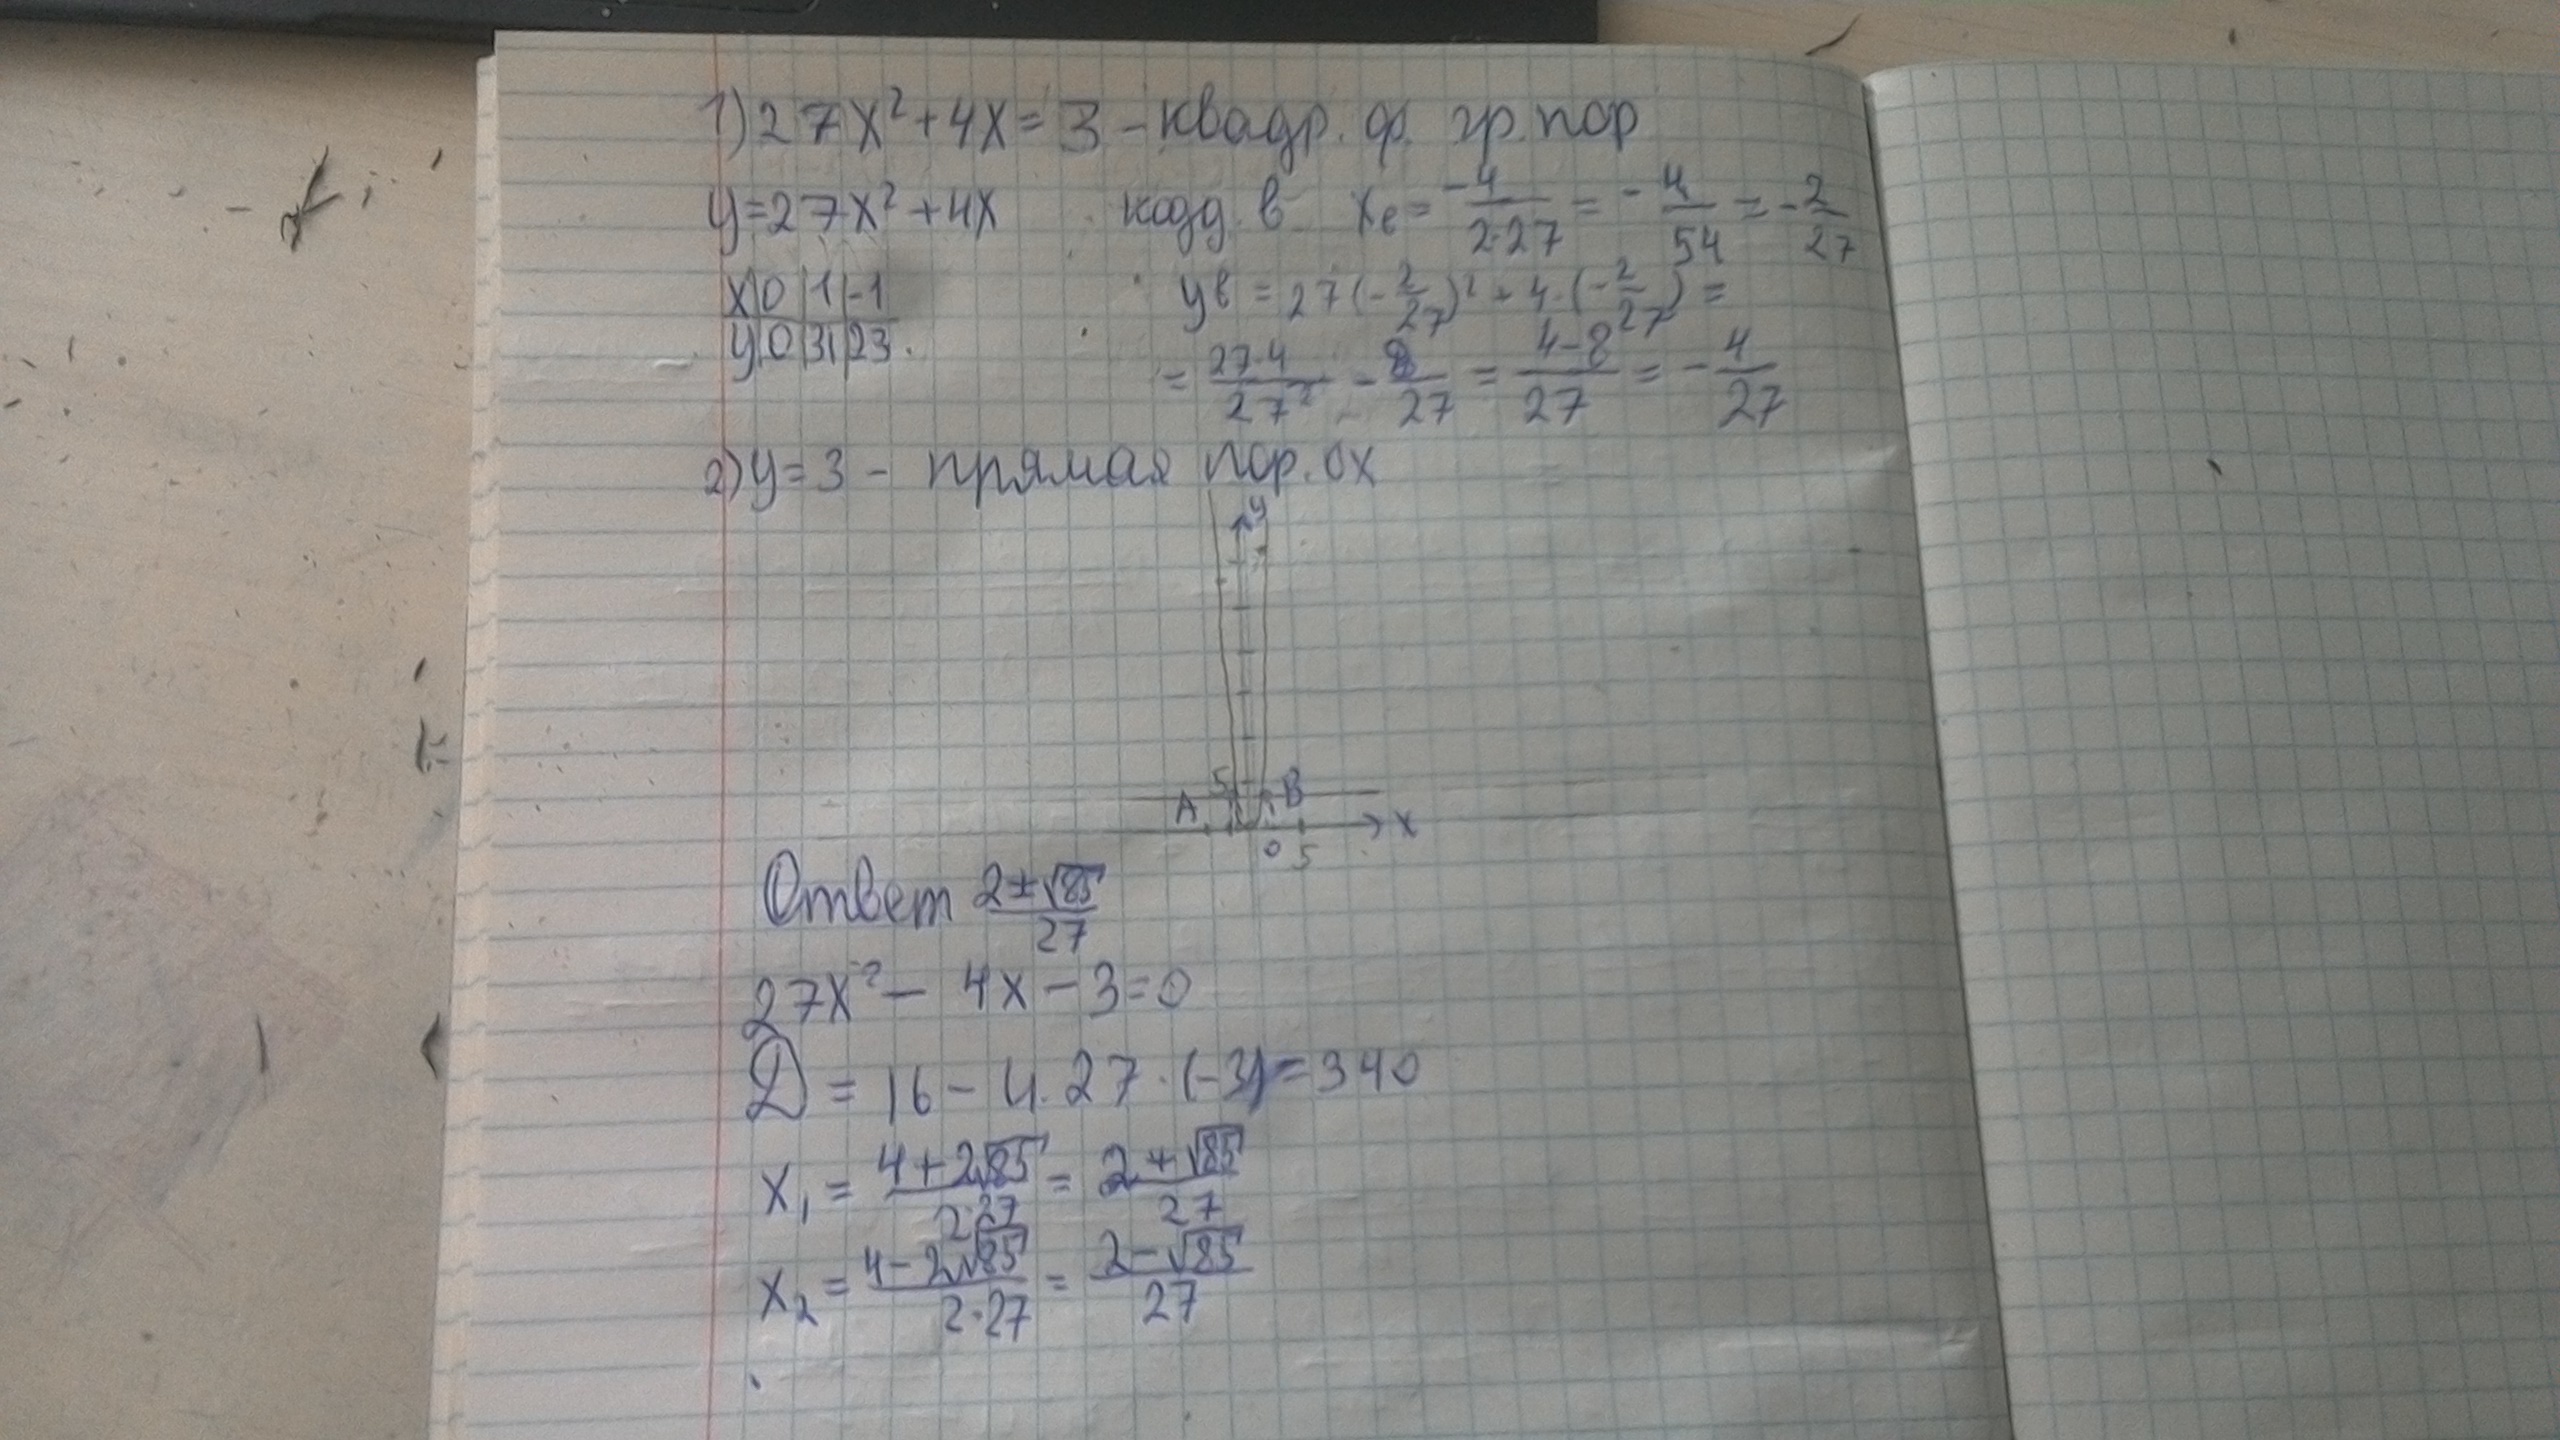 1) 27x² + 4x = 3 - квадр. ф. гр. пор
y = 27x² + 4x коорд. в x в = -4/2·27 = -4/54 = -2/27
x | 0 | 1 | -1
y | 0 | 31 | 23.
yв = 27(-2/27)² + 4·(-2/27) =
= 27·4/27² - 8/27 = 4-8/27 = -4/27
2) y = 3 - прямая пар. ох
y
5
A B
x
0 5
Ответ 2±√85/27
27x² - 4x - 3 = 0
D = 16 - 4·27·(-3) = 340
x₁ = 4+2√85/2·27 = 2+√85/27
x₂ = 4-2√85/2·27 = 2-√85/27